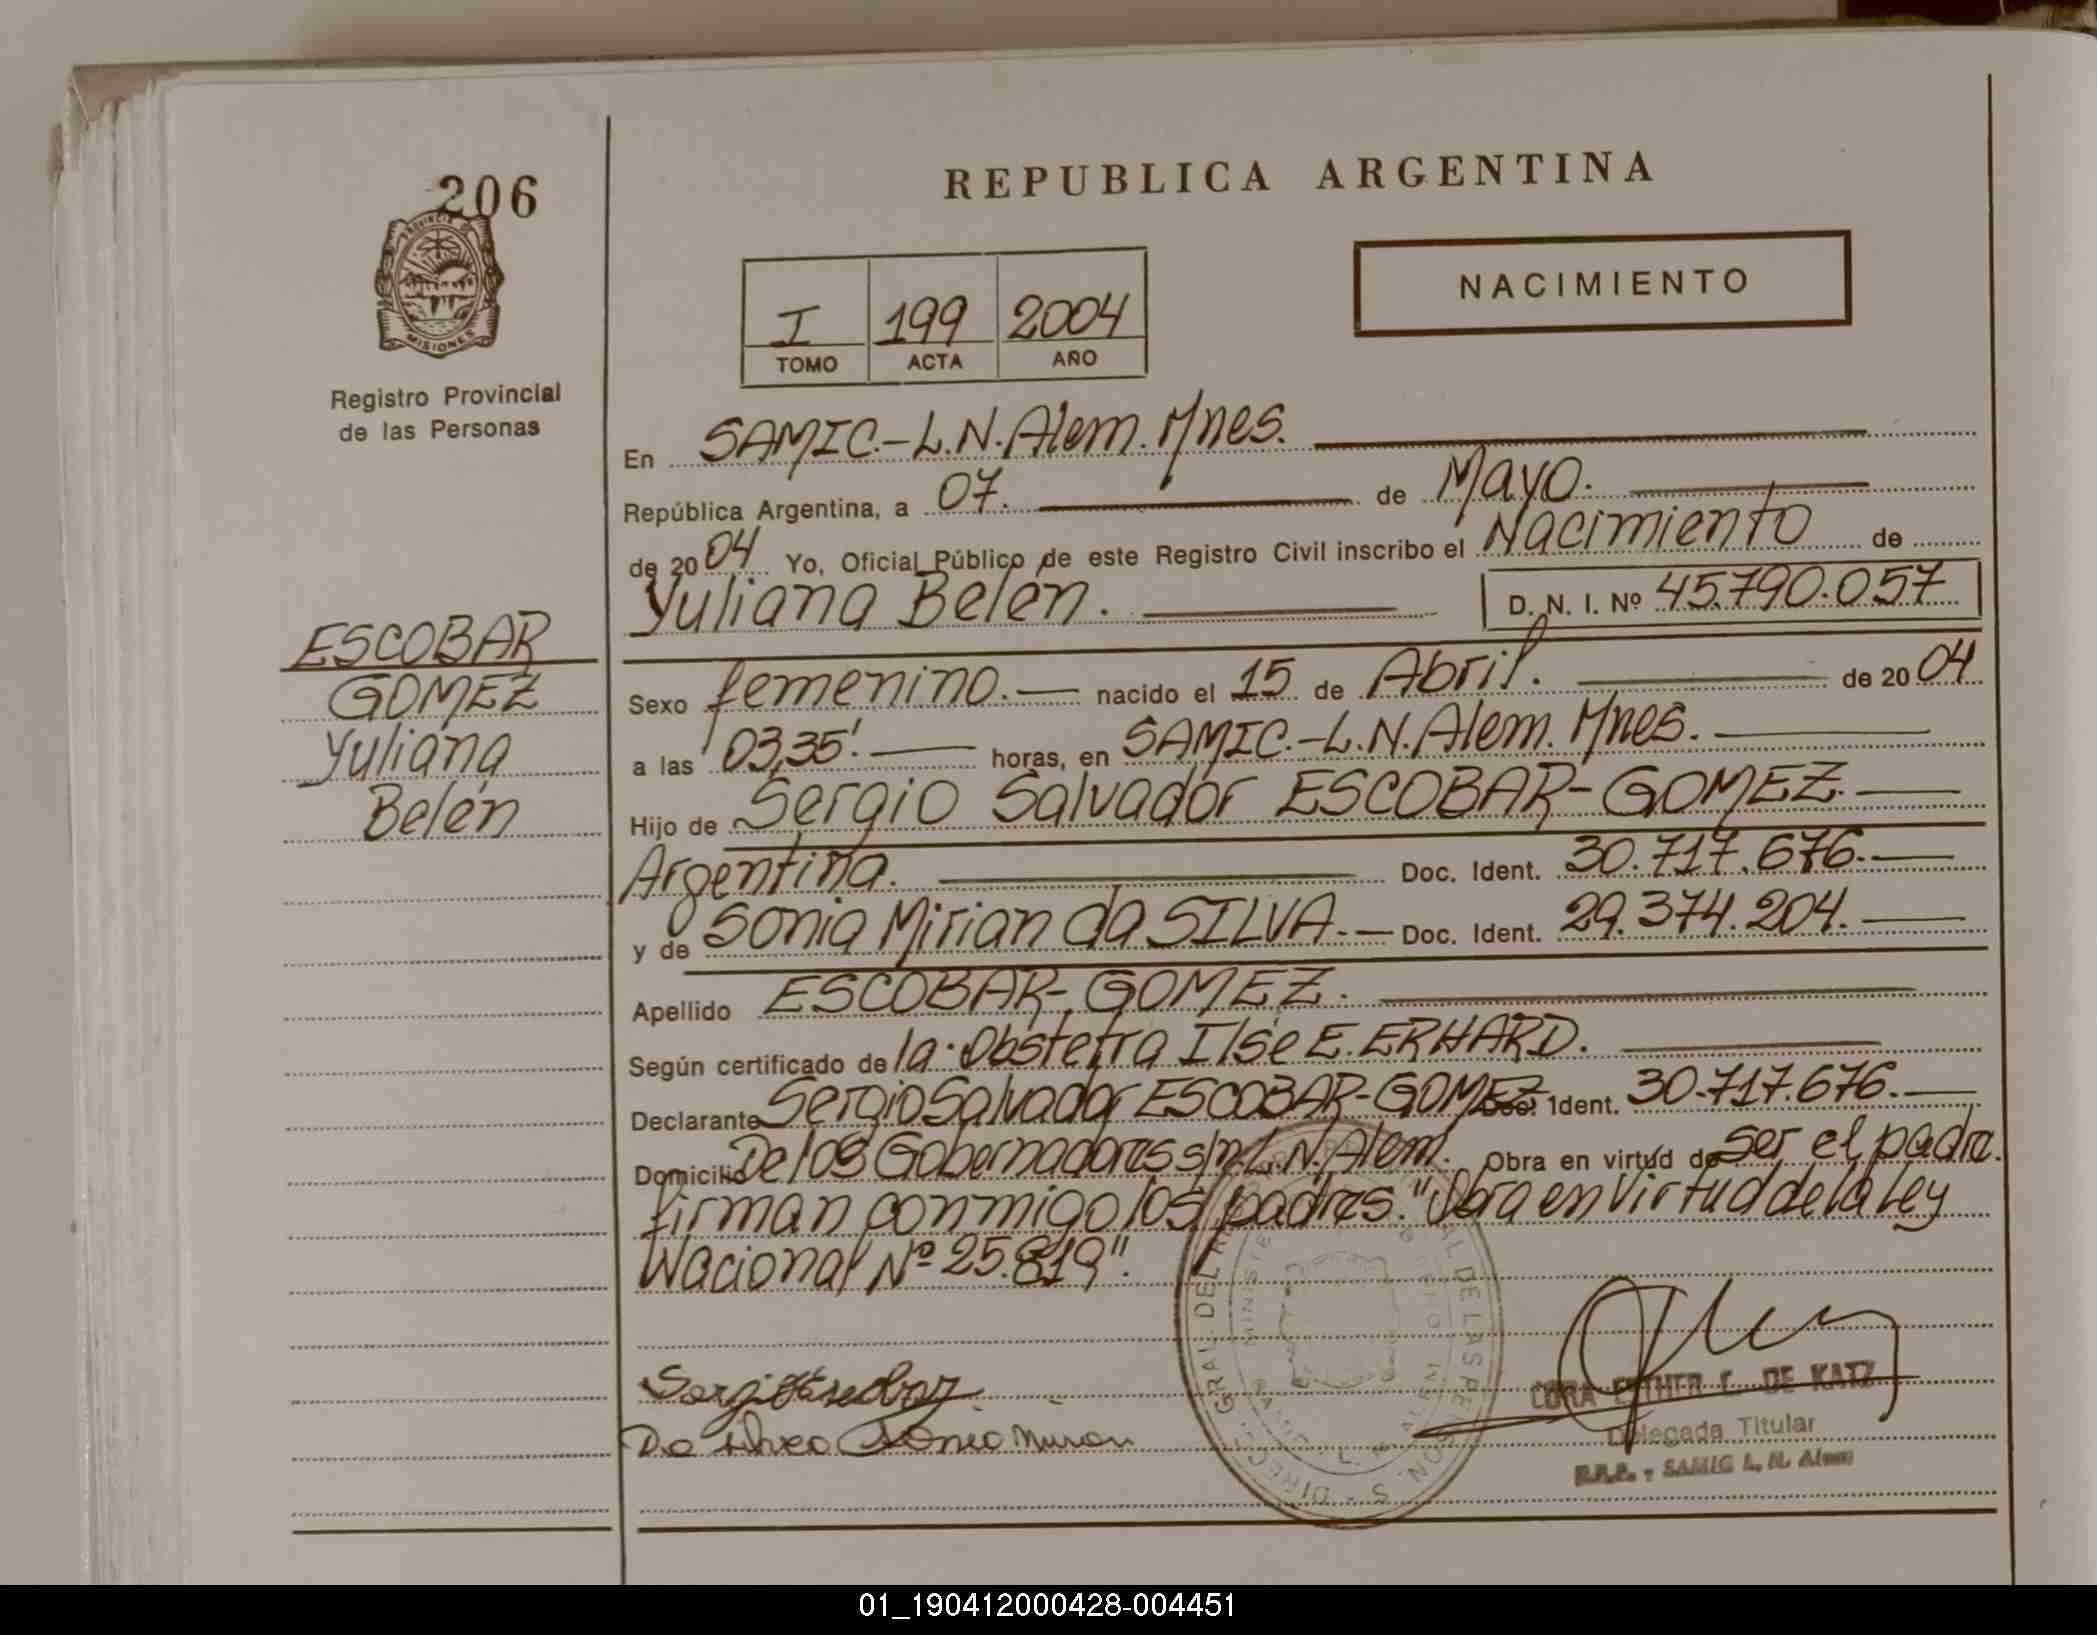 206
PROVINCIA
MISIONES
Registro Provincial
de las Personas
REPUBLICA ARGENTINA
NACIMIENTO
I 199 2004
TOMO ACTA AÑO
ESCOBAR
GOMEZ
Yuliana
Belén
En SAMIC.-L.N.Alem. Mnes.
República Argentina, a 07. de Mayo.
de 2004 Yo, Oficial Público de este Registro Civil inscribo el Nacimiento de
Yuliana Belén. D. N. I. Nº 45.790.057
Sexo femenino.— nacido el 15 de Abril. de 2004
a las 03,35'.— horas, en SAMIC.-L.N.Alem. Mnes.
Hijo de Sergio Salvador ESCOBAR-GOMEZ.—
Argentina. Doc. Ident. 30.717.676.—
y de Sonia Mirian da SILVA.— Doc. Ident. 29.374.204.—
Apellido ESCOBAR-GOMEZ.
Según certificado de la Obstetra Ilse E. ERHARD.
Declarante Sergio Salvador ESCOBAR-GOMEZ Doc. Ident. 30.717.676.—
Domicilio De los Gobernadores s/n L.N. Alem. Obra en virtud de ser el padre.
firman conmigo los padres. "Obra en Virtud de la Ley
Nacional Nº 25.819".
CORA ESTHER F. DE KATZ
Delegada Titular
R.P.P. - SAMIC L. N. Alem
01_190412000428-004451